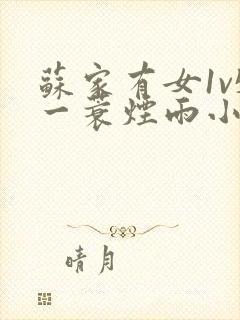 蘇家有女1v
一蓑煙雨小
晴月